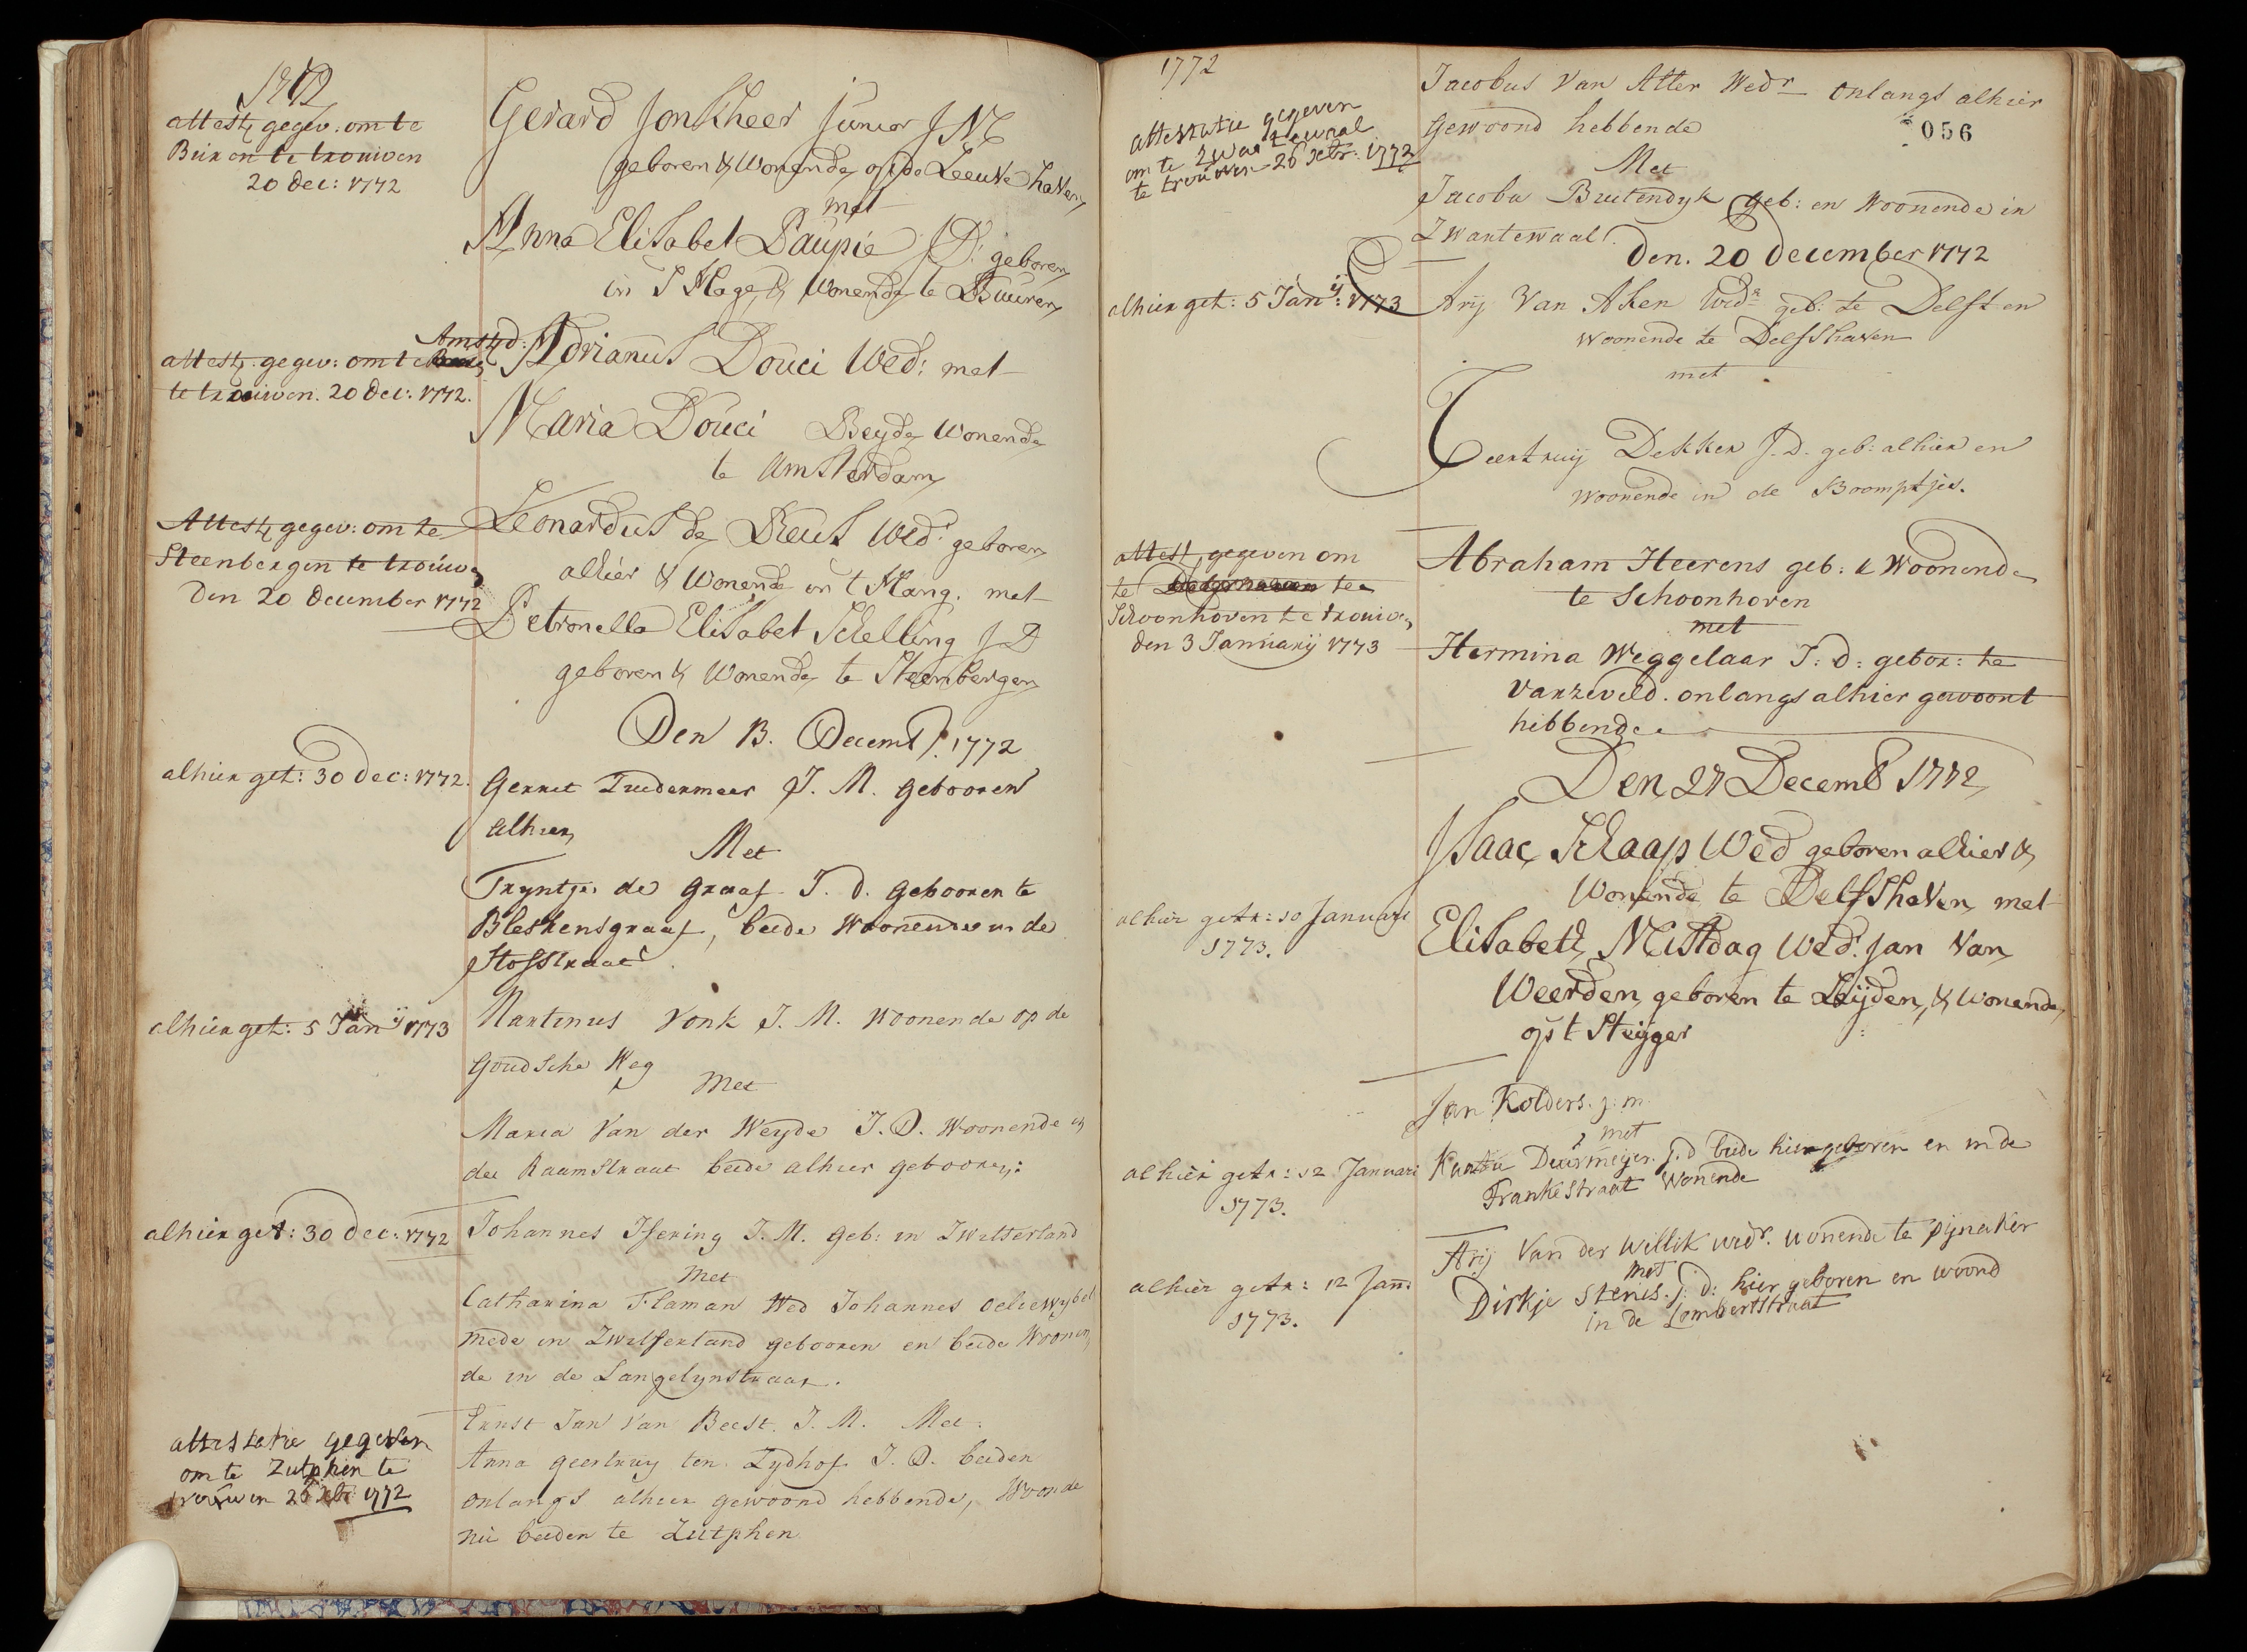 1772
attest gegev: om te
Buren te trouwen
20 dec: 1772
Gerard Jonkheer Junior J M
geboren & Wonende op de Leeuvehaven
met
Anna Elisabet Paupie J D: geboren
in S Hage, & Wonende te Buuren
Amstd:
attest: gegev: om te
te trouwen. 20 dec: 1772.
Adrianus Douci Wed: met
Maria Douci Beyde Wonende
te Amsterdam
Attest gegev: om te
Steenbergen te trouwe
den 20 december 1772
Leonardus de Reus Wedr geboren
alhier & Wonende in 't Hang. met
Petronella Elisabet Schelling J D
geboren & Wonende te Steenbergen
Den 13. Decemb. 1772
alhier get: 30 dec: 1772.
Gerret Tuedermeer J. M. gebooren
alhier,
Met
Tryntje de Graaf J. d. gebooren te
Bleskensgraaf, beide Woonende in de
Stofstraat
alhier get: 5 Jany 1773
Martinus Vonk J. M. Woonende op de
Goudsche Weg
Met
Maria Van der Weyde J. D. Woonende in
de Raamstraat beide alhier gebooren:
alhier get: 30 dec: 1772
Johannes Isering J. M. Geb: in Zwitserland
Met
Catharina Flaman Wed Johannes
mede in Zwitserland gebooren en beide Woonen
de in de Langelynstraat.
attestatie gegeven
om te Zutphen te
trouwen 26 xbr 1772
Ernst Jan Van Beest. J. M. Met:
Anna geertruy ten Zydhof J. D. beiden
onlangs alhier gewoond hebbende, Woonde
nu beiden te Zutphen
1772
attestatie gegeven
om te Zwartewaal
te trouwen 26 xbr: 1772
Jacobus Van Atter Wedr onlangs alhier
gewoond hebbende
056
Met
Jacoba Buitendyk geb: en Woonende in
Zwartewaal.
Den. 20 December 1772
alhier get: 5 Jany: 1773
Arij Van Aken Wedr geb: te Delft en
woonende te Delfshaven
met
Geertruij Dekker J. D. geb: alhier en
woonende in de Boomptjes.
attest, gegeven om
te te
Schoonhoven te trouwen
den 3 Januarij 1773
Abraham Heerens geb: & Woonende
te Schoonhoven
met
Hermina Weggelaar J: d: gebor: te
Varzeveld. onlangs alhier gewoont
hebbende
Den 27 Decemb 1772
Isaac Schaap Wed geboren alhier &
Wonende te Delfshaven, met
alhier getr: 10 Januari
1773.
Elisabeth Mistdag Wed: Jan Van
Weerden, geboren te Leijden, & Wonende
op t Steijger
Jan Kolders. j: m
met
alhier getr: 12 Januari
1773.
Deurmeijer. j. d beide hier geboren en in de
Frankestraat Wonende
Arij Van der Willik wedr. wonende te pijnaker
met
alhier getr: 12 Jan:
1773.
Dirkje Stenis. j: d: hier geboren en woond
in de Lombertstraat